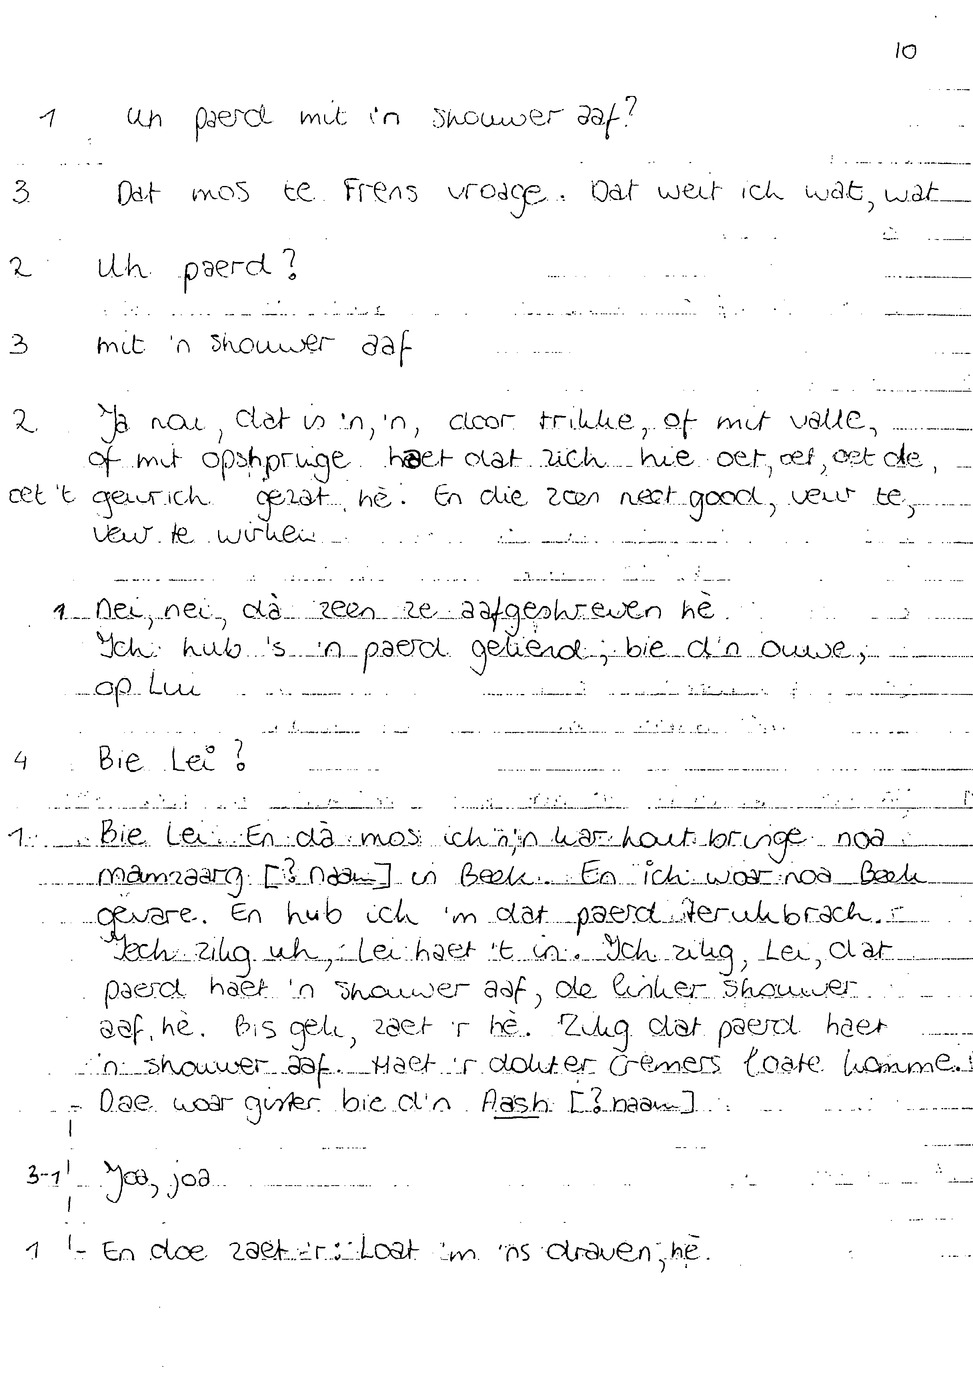 10
1 Uh paerd mit 'n shouwer aaf?
3 Dat mos te Frens vroage. Dat weit ich wat, wat
2 Uh paerd?
3 mit 'n shouwer aaf
2 Ja nou, dat is 'n, 'n, door trikke, of mit valle,
of mit opshpringe haet dat zich hie oet, oet, oet de,
oet 't gewrich gezat, hè. En die zeen neet good, veur te,
veur te wirken
1 Nei, nei, dà zeen ze aafgeshreven hè.
Ich hub 's 'n paerd geliend, bie d'n ouwe,
op Lui
4 Bie Lei?
1 Bie Lei. En dà mos ich 'n, 'n kar hout bringe noa
mamzaarg [? naam] in Beek. En ich woar noa Beek
gevare. En hub ich 'm dat paerd terukbrach.
Iech zikg uh, Lei haet 't in. Ich zikg, Lei, dat
paerd haet 'n shouwer aaf, de linker shouwer
aaf, hè. Bis gek, zaet 'r hè. Zikg dat paerd haet
'n shouwer aaf. Haet 'r dokter Cremers loate komme.
- Dae woar gister bie d'n Aash [? naam]
3-1 Joa, joa
1 - En doe zaet 'r: Loat 'm 'ns draven, hè.